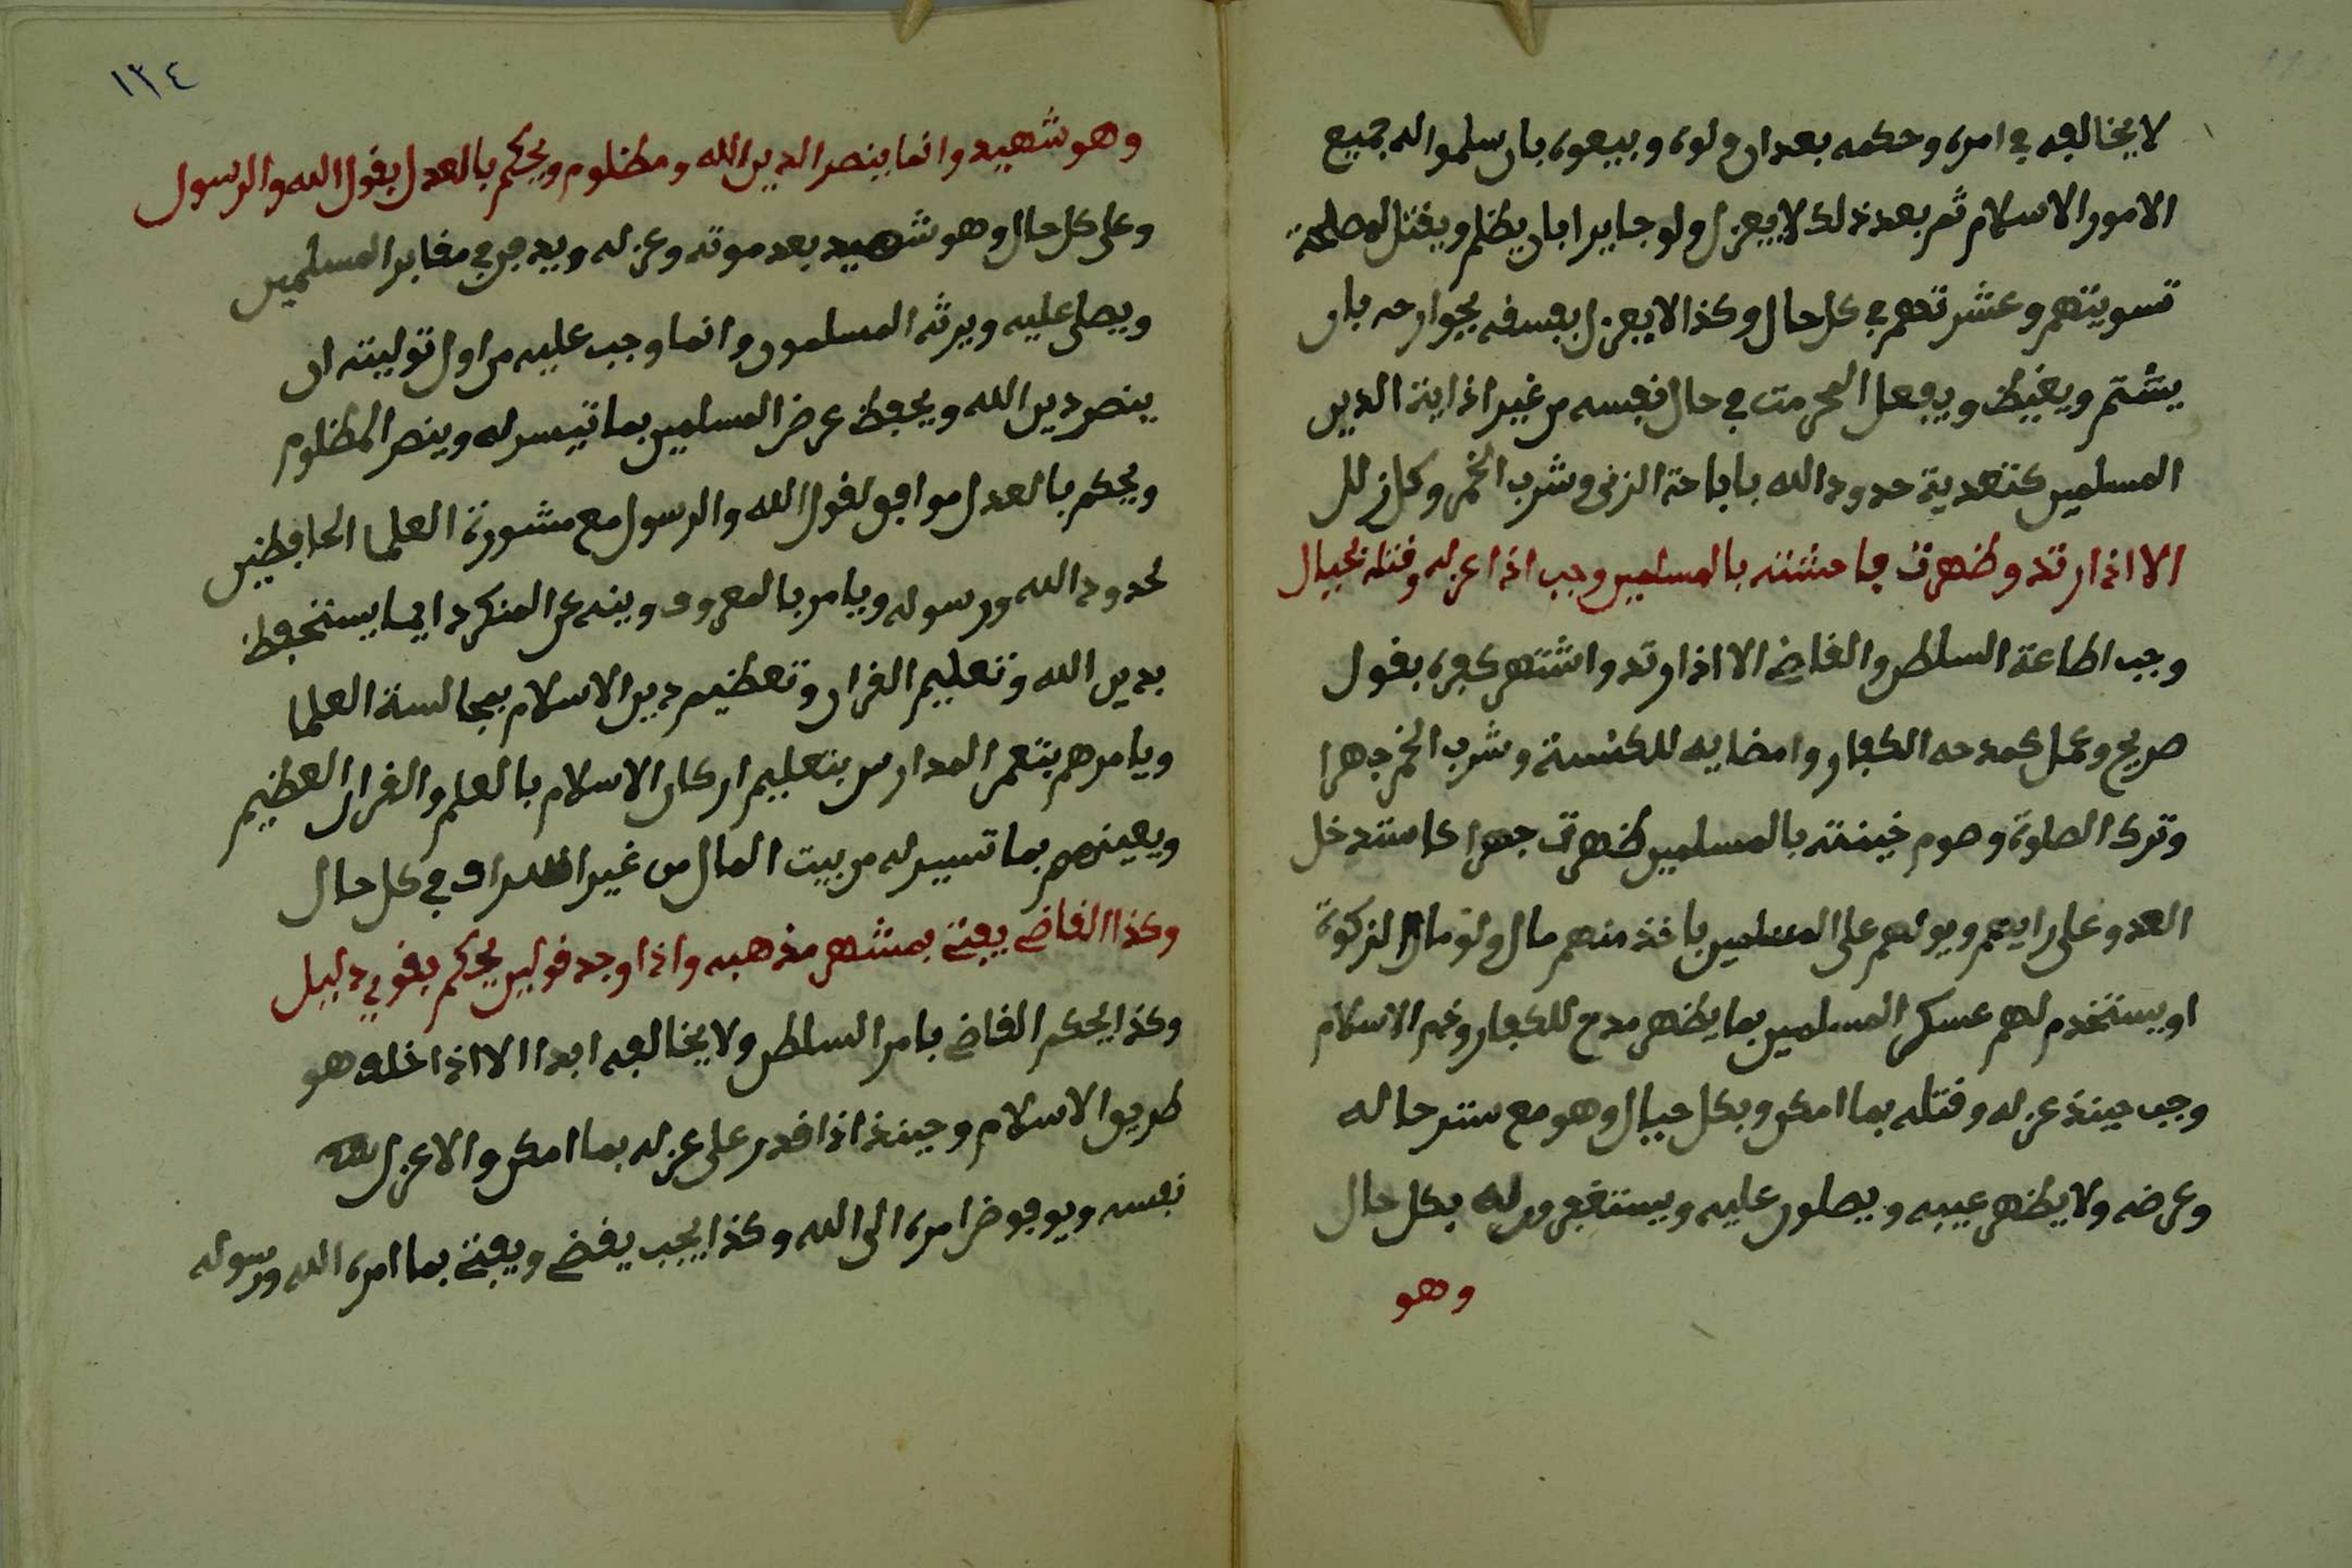 لا يخالفه في امره وحكمه بعد ان ولوه وبيعوه بان سلموا له جميع
الامور الاسلام ثم بعد ذلك لا يعزل ولو جايرا بان يظلم ويقتل لمصلحة
تسويتهم وعشرتهم في كل حال وكذا لا يعزل بفسفه بجوارحه بان
يشتم ويغيظ ويفعل المحرمت في حال نفسه من غير اذاية الدين
المسلمين كتعدية حدود الله باباحة الزنى وشرب الخمر وكل زلل
الا اذا ارتد وظهرت فاحشته بالمسلمين وجب اذا عزله وقتله بحيال
وجب اطاعة السلطن والقاضي الا اذا ارتد واشتهر كفره بقول
صريح وعمل كمدحه الكفار وامضايه للكنسة وشرب الخمر جهرا
وترك الصلوة وصوم خينته بالمسلمين ظهرت جهرا كاستدخل
العدو على رايهم ويولهم على المسلمين باخذ منهم مال ولو مال الزكوة
او يستخدم لهم عسكر المسلمين بما يظهر مدح للكفار وذم الاسلام
وجب حينذ عزله وقتله بما امكن وبكل حيال وهو مع ستر حاله
وعرضه ولا يظهر عيبه ويصلون عليه ويستغفرون له بكل حال
وهو
١٣٤
وهو شهيد وانما ينصر الدين الله ومظلوم ويحكم بالعدل بقول الله والرسول
وعلى كل حال وهو شهيد بعد موته وعزله ويدفن في مقابر المسلمين
ويصلى عليه ويرثه المسلمون وانما وجب عليه من اول توليته ان
ينصر دين الله ويحفظ عرض المسلمين بما تيسر له وينصر المظلوم
ويحكم بالعدل موافق لقول الله والرسول مع مشورة العلما الحافظين
لحدود الله ورسوله ويامر بالمعروف وينه عن المنكر دايما يستحفظ
بدين الله وتعليم القران وتعظيم دين الاسلام بمجالسة العلما
ويامرهم بتعمر المدارس بتعليم اركان الاسلام بالعلم والقران العظيم
ويعينهم بما تسير له من بيت المال من غير اسراف في كل حال
وكذا القاضي يفتي بمشهر مذهبه واذا وجد قولين يحكم بقوي دليل
وكذا يحكم القاضي بامر السلطن ولا يخالفه ابدا الا اذا خلف هو
طريق الاسلام وحينذ اذا قدر على عزله بما امكن والا عزل
نفسه ويوفوض امره الى الله وكذا يجب يقضي ويفتي بما امره الله ورسوله